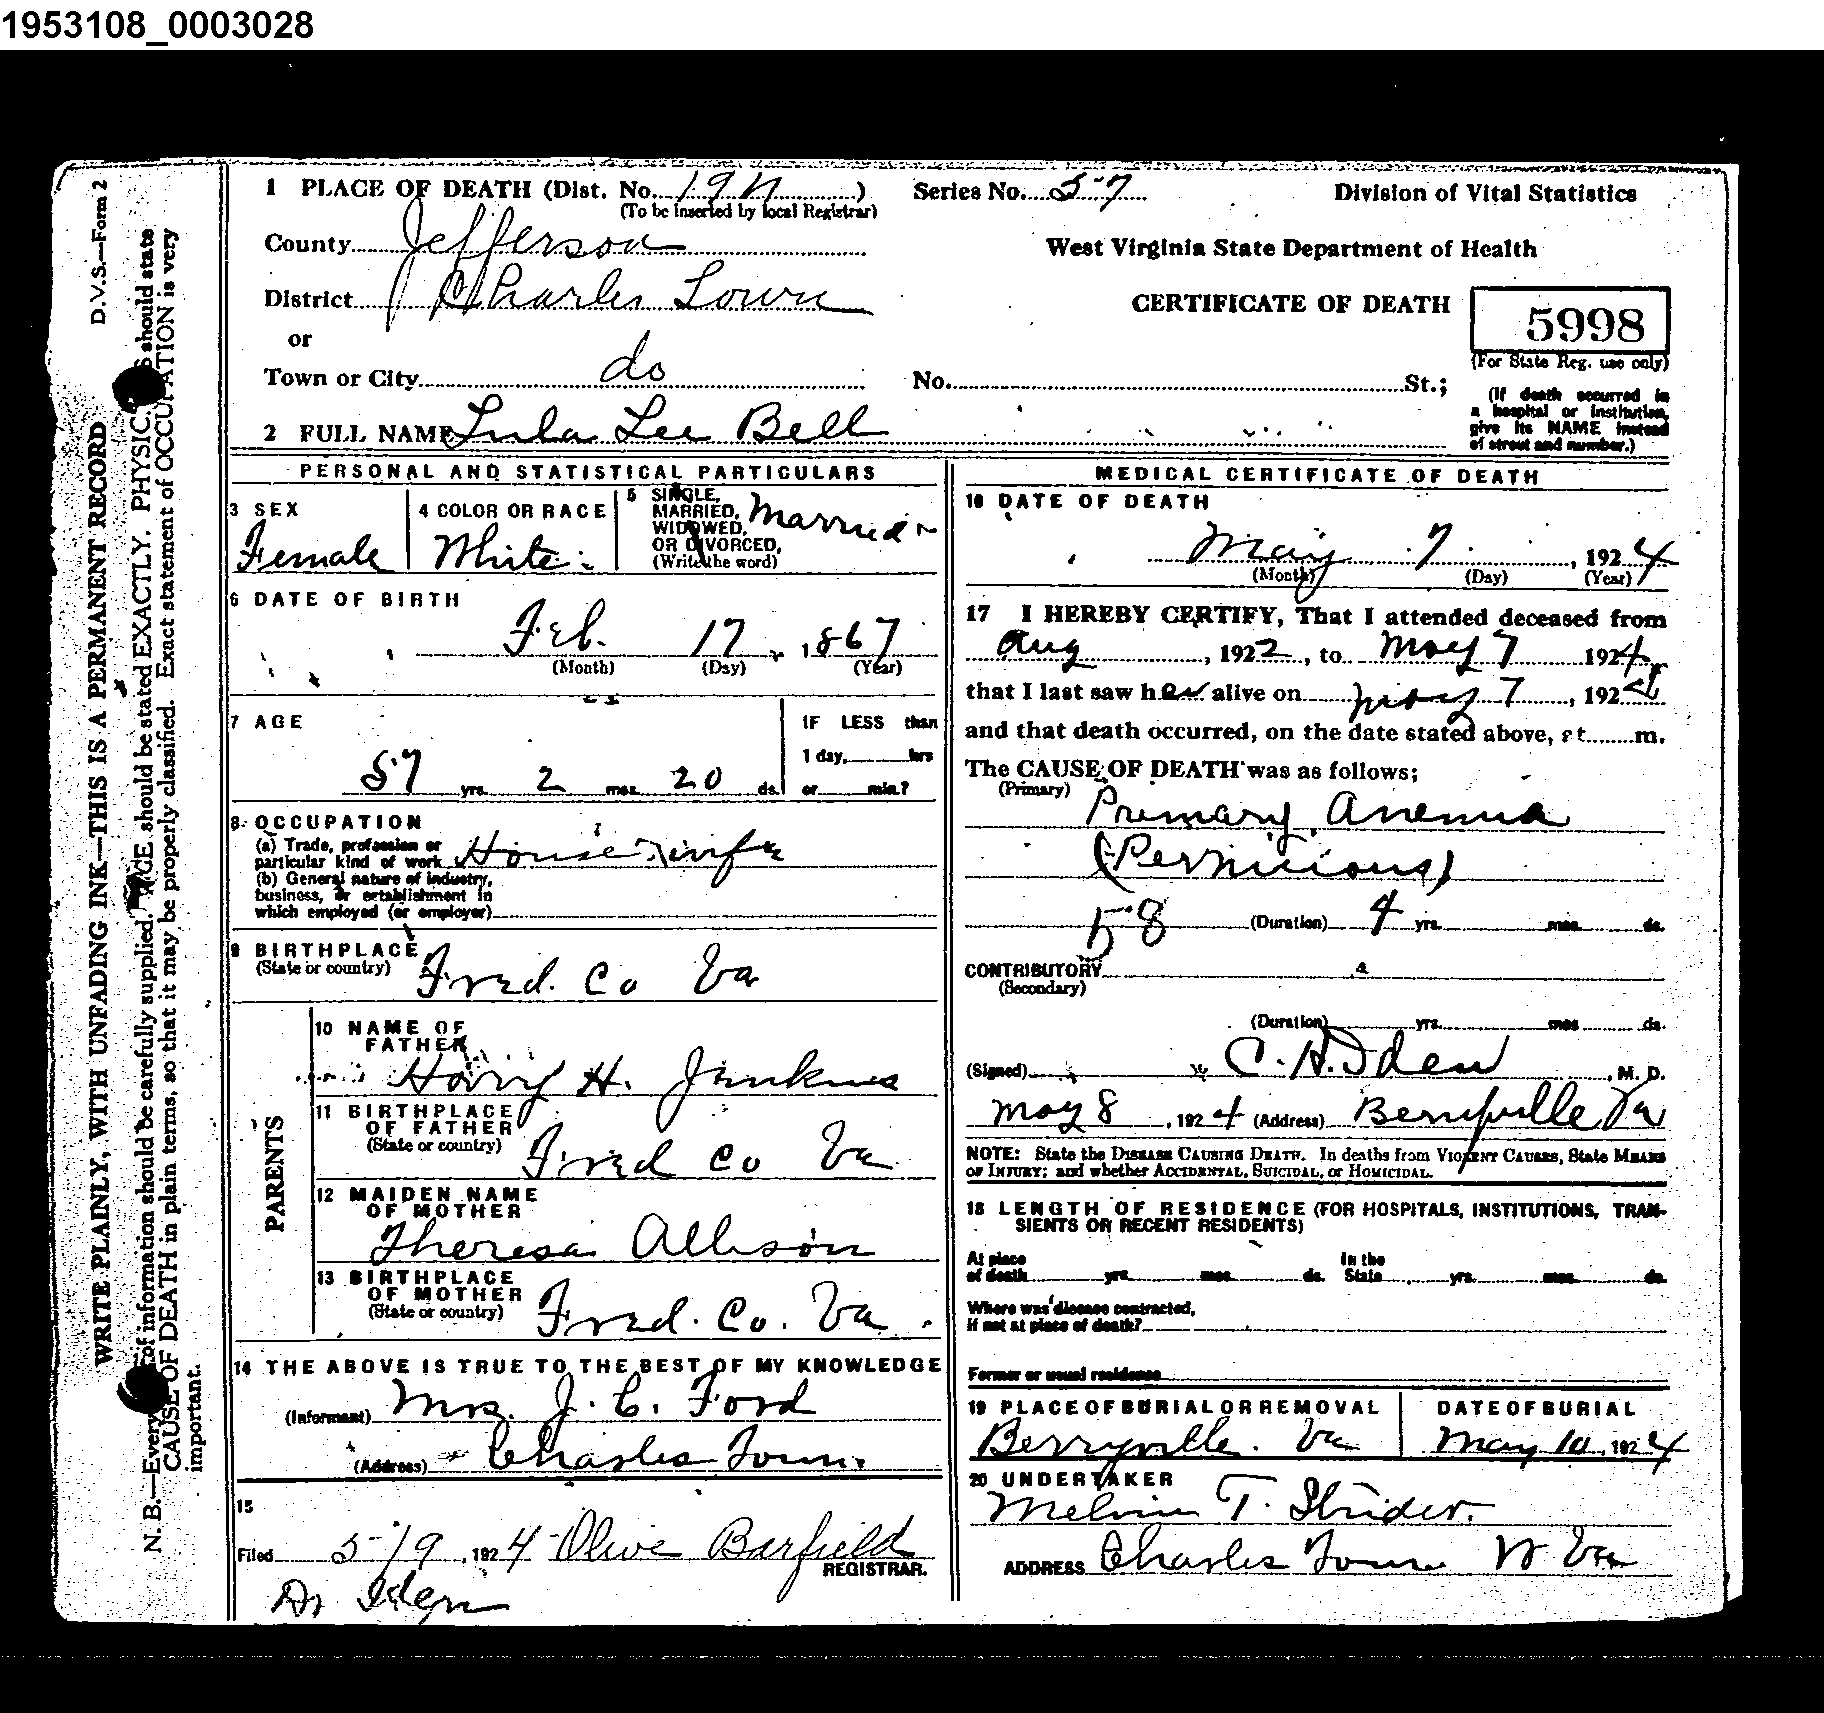 1953108_0003028
1 PLACE OF DEATH (Dist. No. 191) Series No. 57 Division of Vital Statistics
(To be inserted by local Registrar)
County Jefferson
West Virginia State Department of Health
District Charles Town
CERTIFICATE OF DEATH 5998
or
(For State Reg. use only)
Town or City do No. St.;
(If death occurred in a hospital or institution, give its NAME instead of street and number.)
2 FULL NAME Lula Lee Bell
PERSONAL AND STATISTICAL PARTICULARS
3 SEX
Female
4 COLOR OR RACE
White
5 SINGLE, MARRIED, WIDOWED, OR DIVORCED, (Write the word)
Married
6 DATE OF BIRTH
Feb. 17, 1867
(Month) (Day) (Year)
7 AGE
57 yrs. 2 mos. 20 ds.
IF LESS than
1 day, hrs
or min.?
8 OCCUPATION
(a) Trade, profession or
particular kind of work Housewife
(b) General nature of industry,
business, or establishment in
which employed (or employer)
9 BIRTHPLACE
(State or country) Fred. Co Va
PARENTS
10 NAME OF
FATHER
Harry H. Jenkins
11 BIRTHPLACE
OF FATHER
(State or country) Fred Co Va
12 MAIDEN NAME
OF MOTHER
Theresa Allison
13 BIRTHPLACE
OF MOTHER
(State or country) Fred. Co. Va.
14 THE ABOVE IS TRUE TO THE BEST OF MY KNOWLEDGE
(Informant) Mrs. J. C. Ford
(Address) Charles Town.
15
Filed 5-/9, 1924 Olive Barfield
REGISTRAR.
Dr Iden
MEDICAL CERTIFICATE OF DEATH
16 DATE OF DEATH
May 7, 1924
(Month) (Day) (Year)
17 I HEREBY CERTIFY, That I attended deceased from
Aug, 1922, to May 7 1924,
that I last saw her alive on May 7, 1924
and that death occurred, on the date stated above, at m.
The CAUSE OF DEATH was as follows;
(Primary)
Primary Anemia
(Pernicious)
58 (Duration) 4 yrs. mos. ds.
CONTRIBUTORY
(Secondary)
(Duration) yrs. mos ds.
(Signed) C. H. Iden, M. D.
May 8, 1924 (Address) Berryville Va
NOTE: State the DISEASE CAUSING DEATH. In deaths from VIOLENT CAUSES, State MEANS
OF INJURY; and whether ACCIDENTAL, SUICIDAL, or HOMICIDAL.
18 LENGTH OF RESIDENCE (FOR HOSPITALS, INSTITUTIONS, TRAN-
SIENTS OR RECENT RESIDENTS)
At place
of death yrs. mos. ds.
In the
State yrs. mos. ds.
Where was disease contracted,
if not at place of death?
Former or usual residence
19 PLACE OF BURIAL OR REMOVAL
Berryville. Va
DATE OF BURIAL
May 10, 1924
20 UNDERTAKER
Melvin T. Strider.
ADDRESS Charles Town W Va
D.V.S.—Form 2
WRITE PLAINLY, WITH UNFADING INK—THIS IS A PERMANENT RECORD
N. B.—Every of information should be carefully supplied. AGE should be stated EXACTLY. PHYSIC S should state
CAUSE OF DEATH in plain terms, so that it may be properly classified. Exact statement of OCCUPATION is very
important.